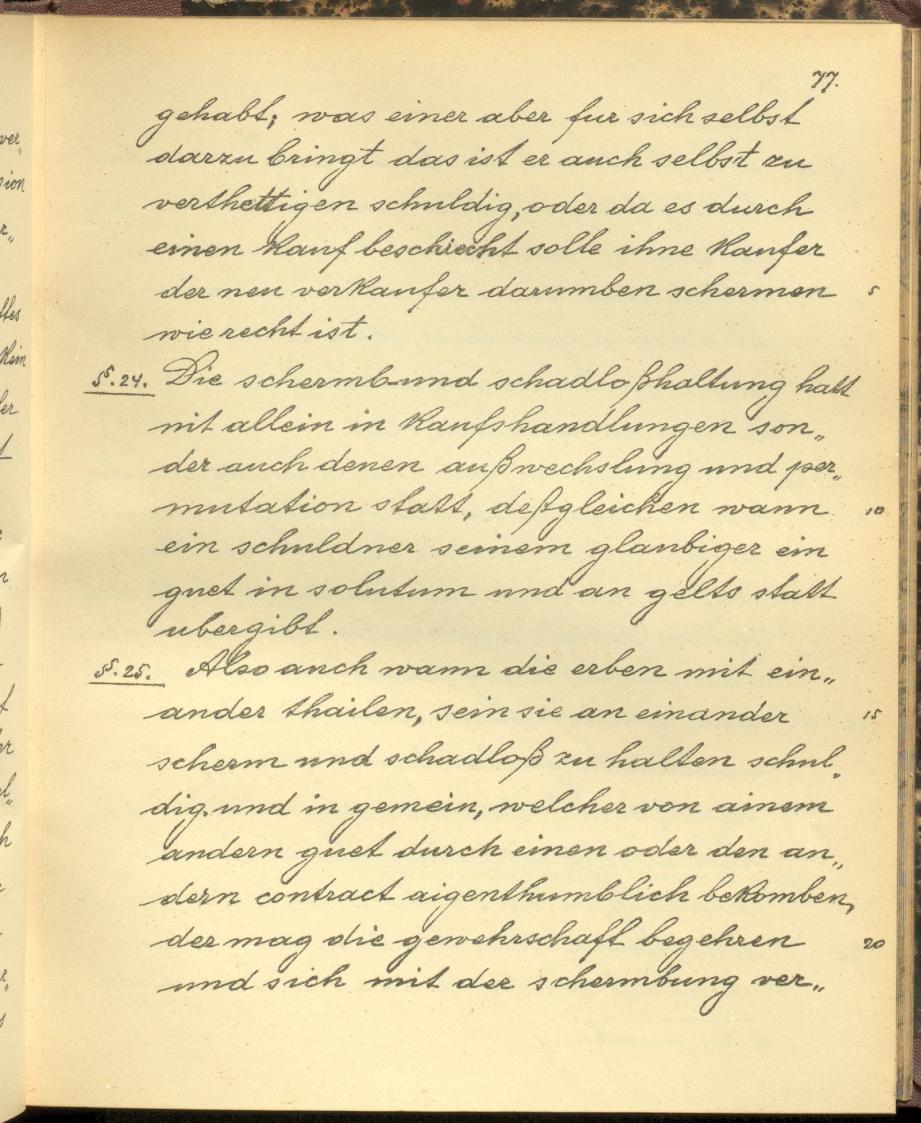 77.
gehabt; was einer aber fur sich selbst
darzu bringt das ist er auch selbst zu
verthettigen schuldig, oder da es durch
einen Kauf beschiecht solle ihne Kaufer
der neu verKaufer darumben schermen 5
wie recht ist.
§. 24. Die schermb und schadloßhaltung hatt
nit allein in Kaufshandlungen son„
der auch denen außwechslung und per„
mutation statt, deßgleichen wann 10
ein schuldner seinem glaubiger ein
guet in solutum und an gelts statt
ubergibt.
§. 25. Also auch wann die erben mit ein„
ander thailen, sein sie an einander 15
scherm und schadloß zu halten schul„
dig. und in gemein, welcher von ainem
andern guet durch einen oder den an„
dern contract aigenthumblich beKomben,
der mag die gewehrschaft begehren 20
und sich mit der schermbung ver„
ver„
sion
r„
ftes
Klein
ler